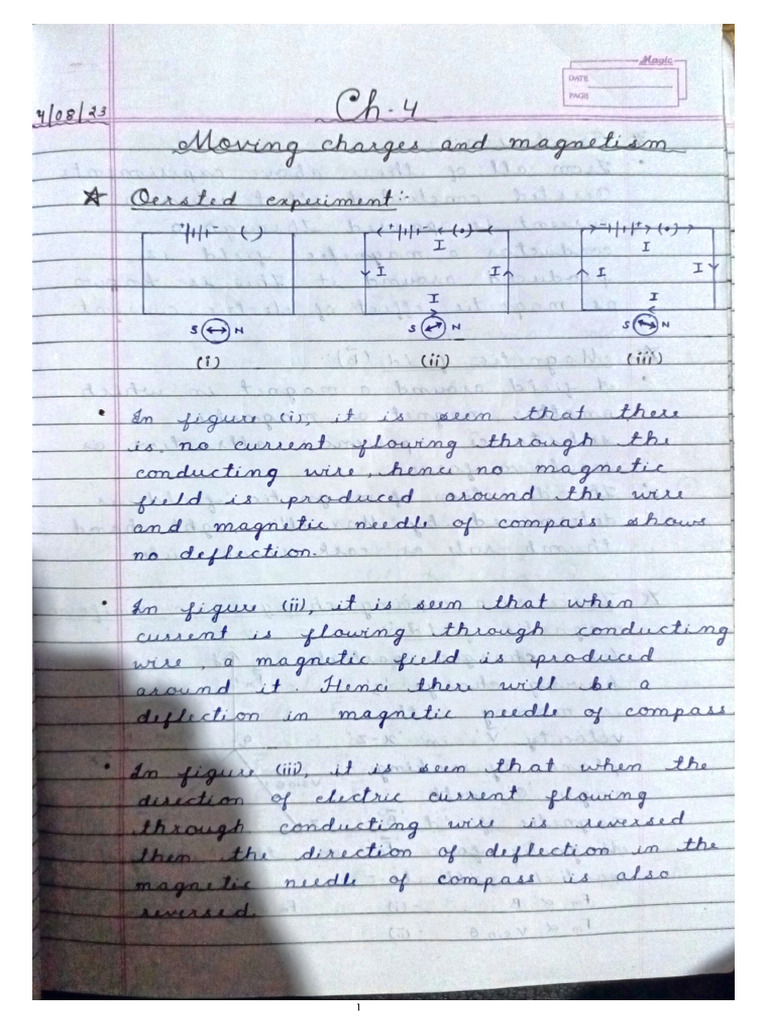 Magic
DATE
PAGE
4/08/23
Ch-4
Moving charges and magnetism
☆ Oersted experiment:-
+ - ( )
+ - (•)
- + (•)
I I
I I I I
I I
S N S N S N
(i) (ii) (iii)
• In figure (i), it is seen that there
is no current flowing through the
conducting wire, hence no magnetic
field is produced around the wire
and magnetic needle of compass shows
no deflection.
• In figure (ii), it is seen that when
current is flowing through conducting
wire, a magnetic field is produced
around it. Hence there will be a
deflection in magnetic needle of compass
• In figure (iii), it is seen that when the
direction of electric current flowing
through conducting wire is reversed
then the direction of deflection in the
magnetic needle of compass is also
reversed.
1